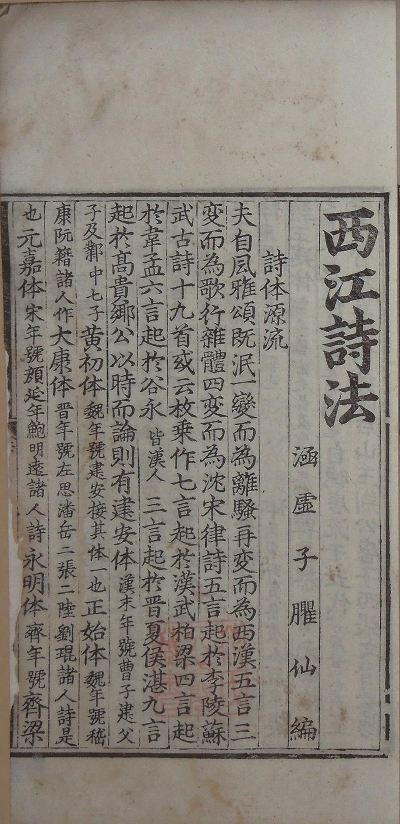 西江詩法
涵虛子臞仙編
詩体源流
夫自風雅頌既泯一變而為離騷再变而為西漢五言三
变而為歌行雜體四变而為沈宋律詩五言起於李陵蘇
武古詩十九首或云枚乗作七言起於漢武柏梁四言起
於韋孟六言起於谷永皆漢人三言起於晋夏侯湛九言
起於高貴鄉公以時而論則有建安体漢末年號曹子建父
子及鄴中七子黄初体魏年號建安接其体一也正始体魏年號嵇
康阮籍諸人作大康体晋年號左思潘岳二張二陸劉琨諸人詩是
也元嘉体宋年號顔延年鮑明遠諸人詩永明体齊年號齊梁